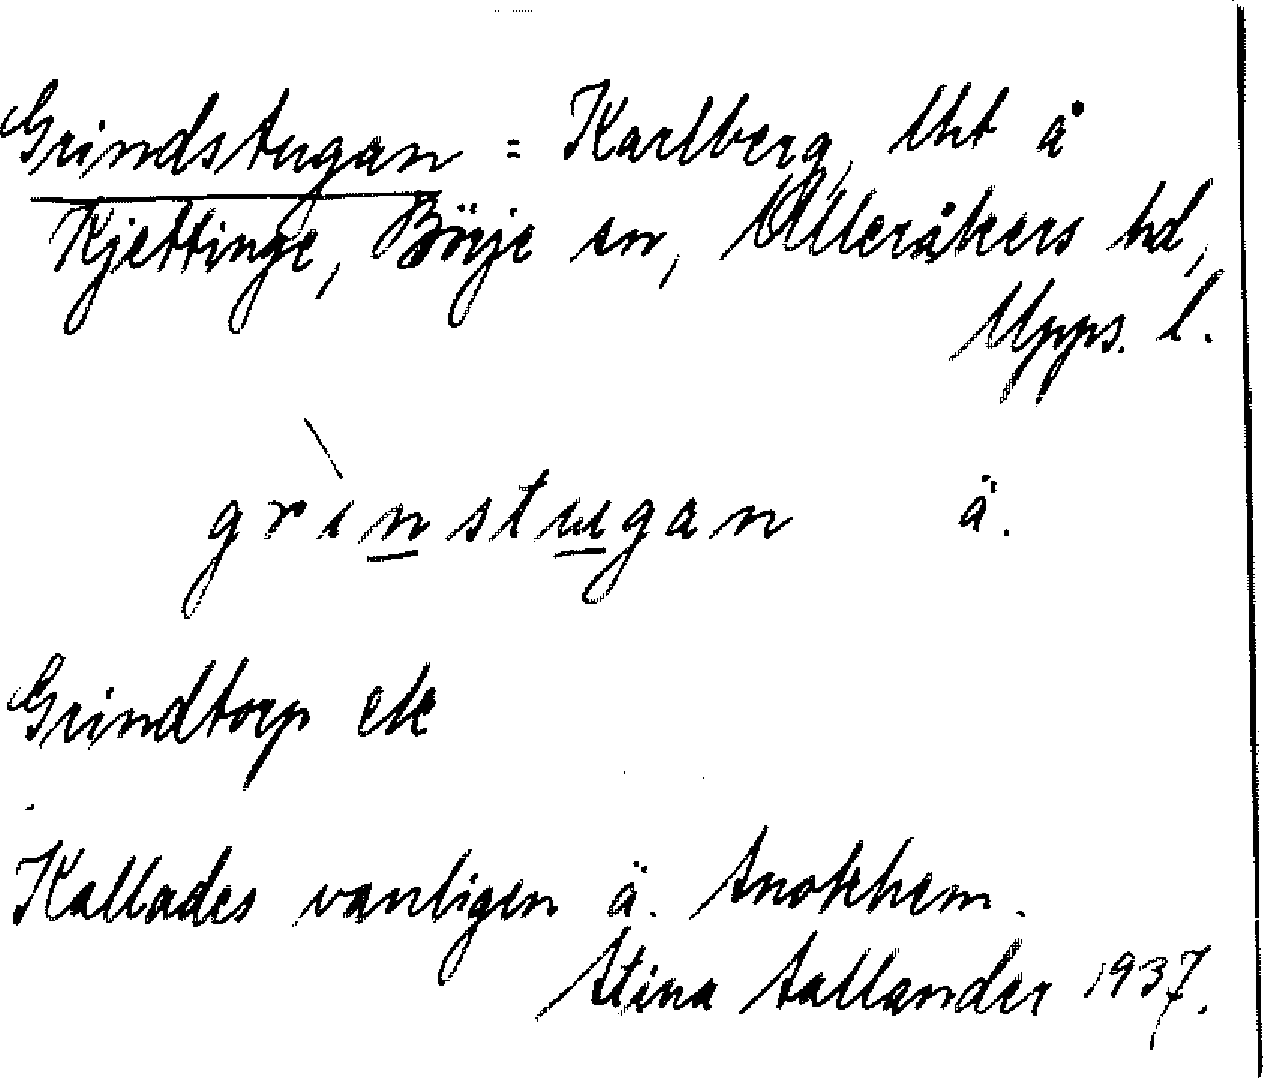 Grindstugan = Karlberg, lht å
Kjettinge, Börje sn, Ulleråkers hd,
Upps. l.
grìnstugan ä.
Grindtorp etc
Kallades vanligen ä. Snokhem.
Stina Sallander 1937.